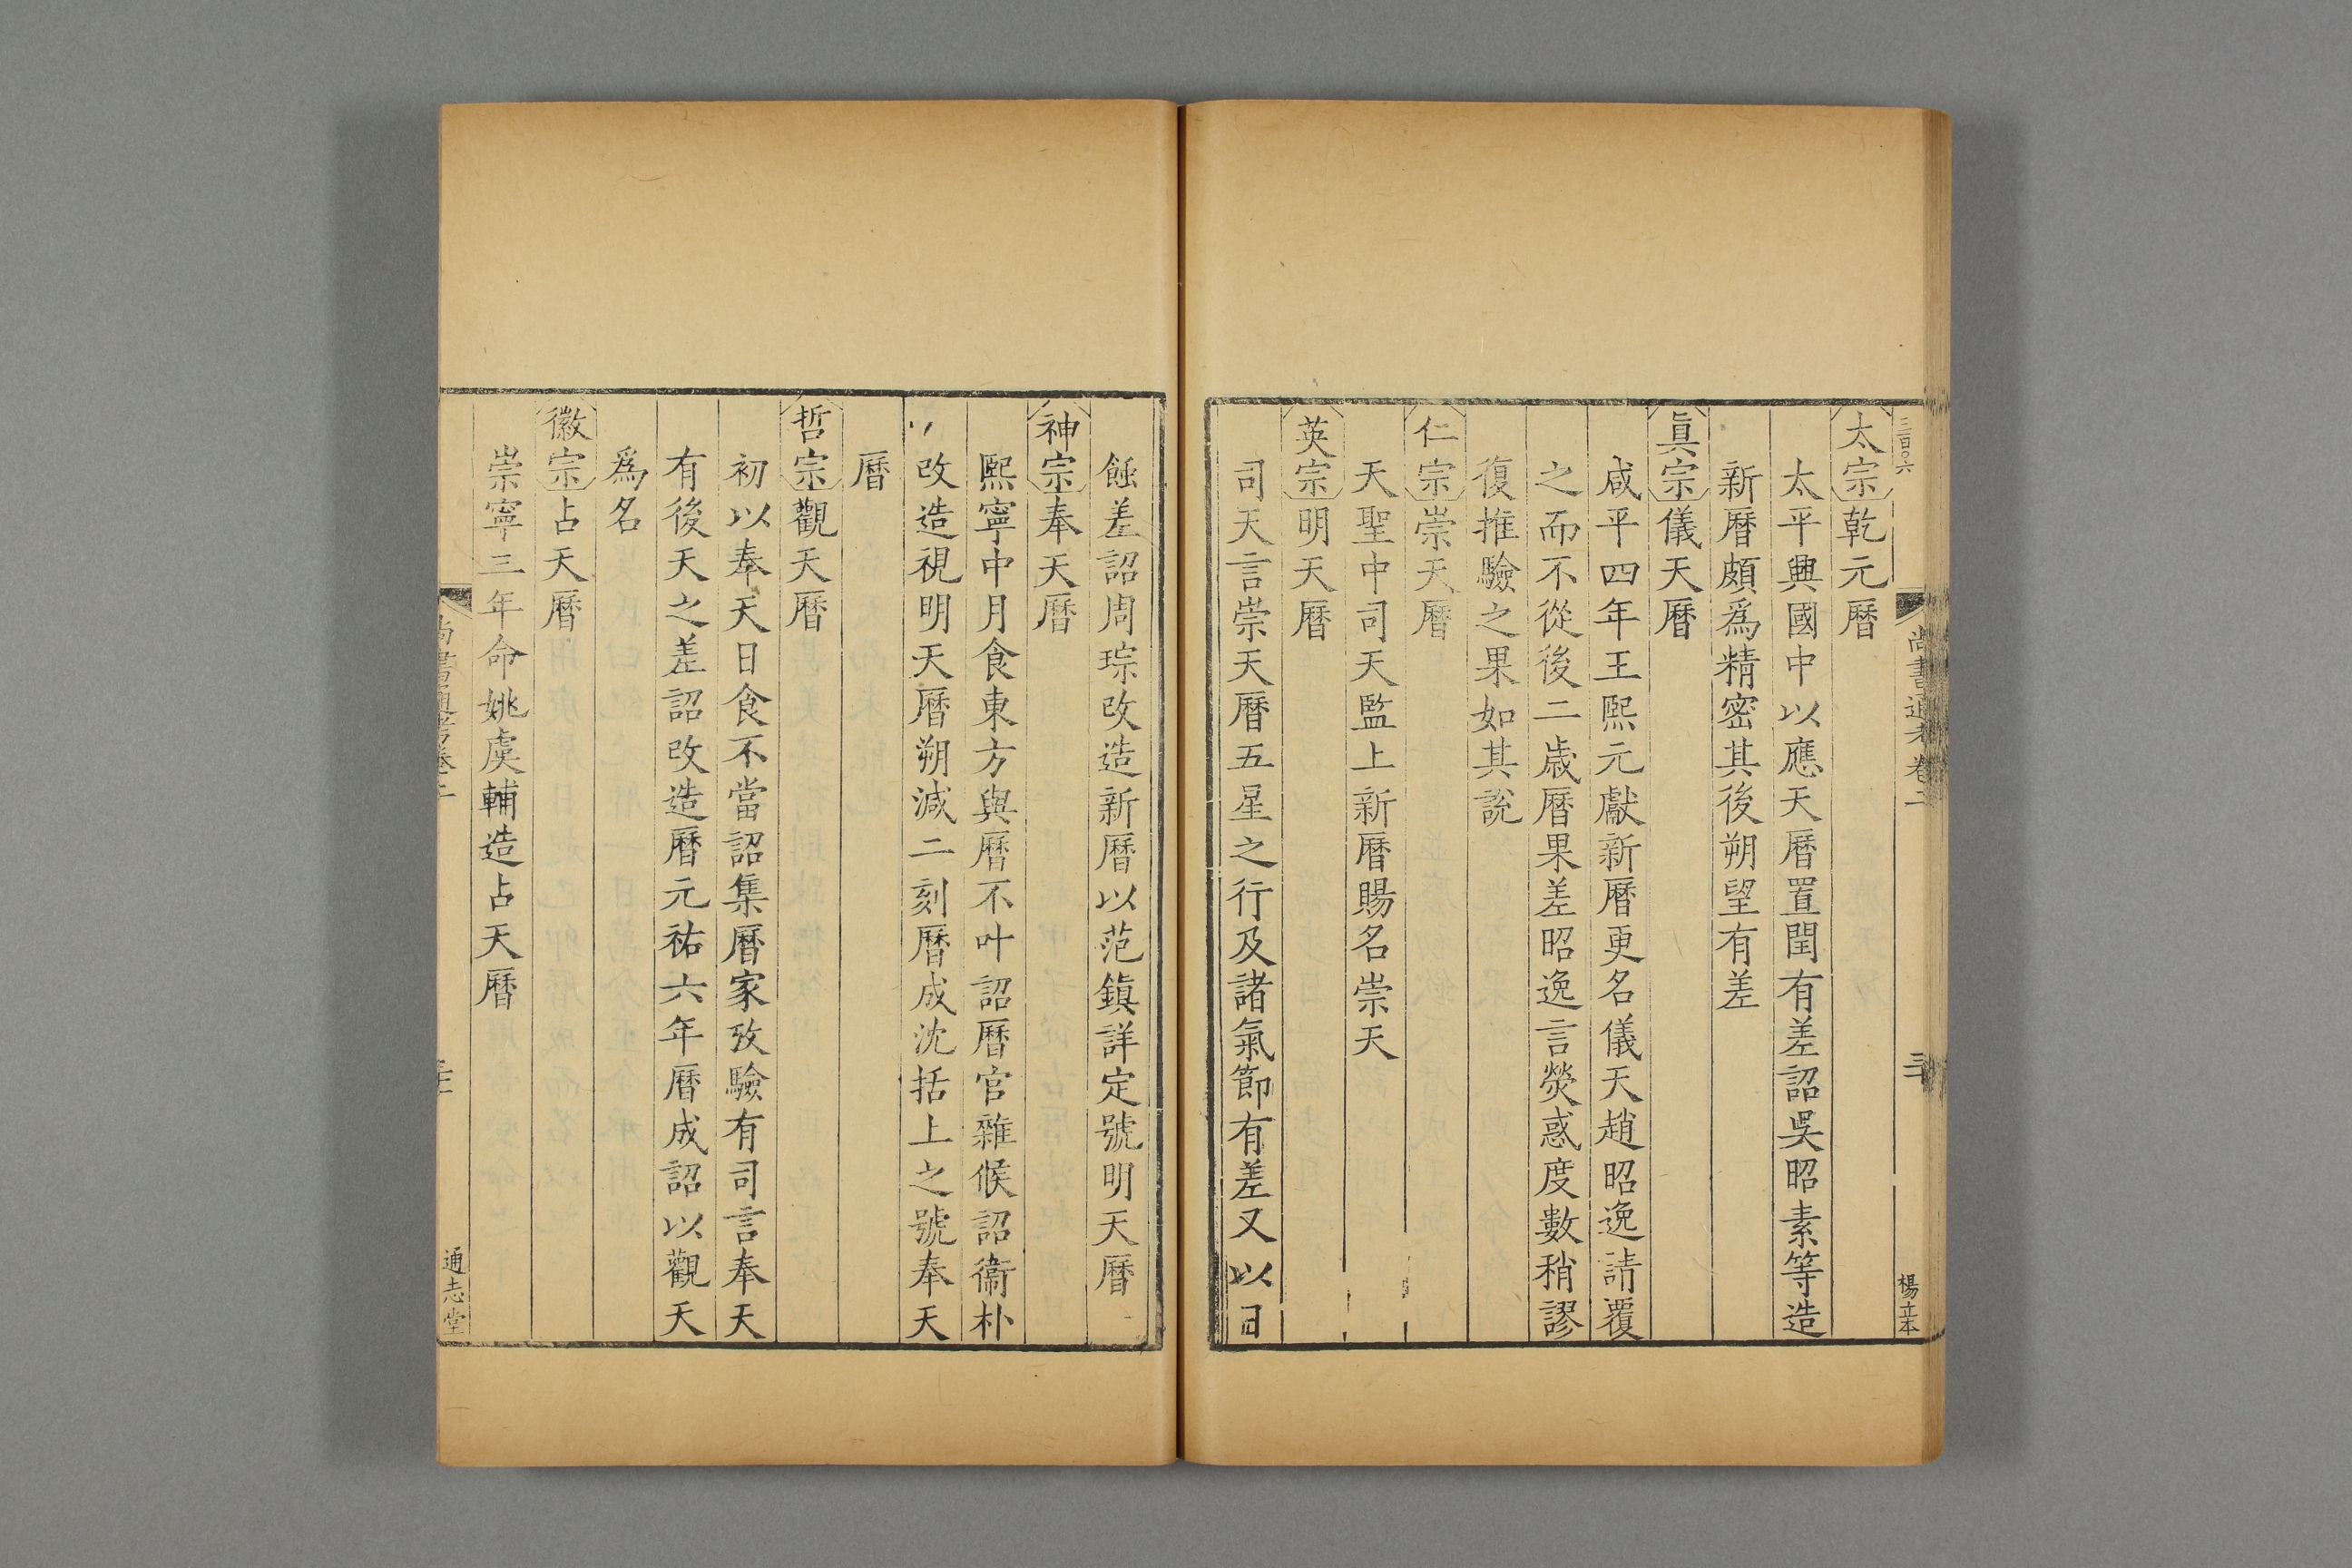 三百〇六
尚書通考卷二
三十
楊立本
太宗乾元曆
太平興國中以應天曆置閏有差詔吳昭素等造
新曆頗爲精密其後朔望有差
眞宗儀天曆
咸平四年王熙元獻新曆更名儀天趙昭逸請覆
之而不從後二歲曆果差昭逸言熒惑度數稍謬
復推驗之果如其說
仁宗崇天曆
天聖中司天監上新曆賜名崇天
英宗明天曆
司天言崇天曆五星之行及諸氣節有差又以日
蝕差詔周琮改造新曆以范鎮詳定號明天曆
神宗奉天曆
熙寧中月食東方與曆不叶詔曆官雜候詔衞朴
改造視明天曆朔減二刻曆成沈括上之號奉天
曆
哲宗觀天曆
初以奉天日食不當詔集曆家攷驗有司言奉天
有後天之差詔改造曆元祐六年曆成詔以觀天
爲名
徽宗占天曆
崇寧三年命姚虞輔造占天曆
尚書通考卷二
通志堂